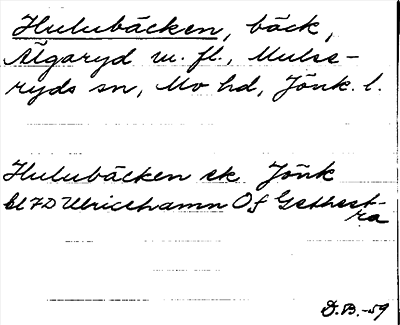 Hulubäcken, bäck,
Älgaryd m. fl., Mulse-
ryds sn, Mo hd, Jönk. l.
Hulubäcken ek Jönk
bl 7D Ulricehamn Of Gethest-
ra
D.B.-59